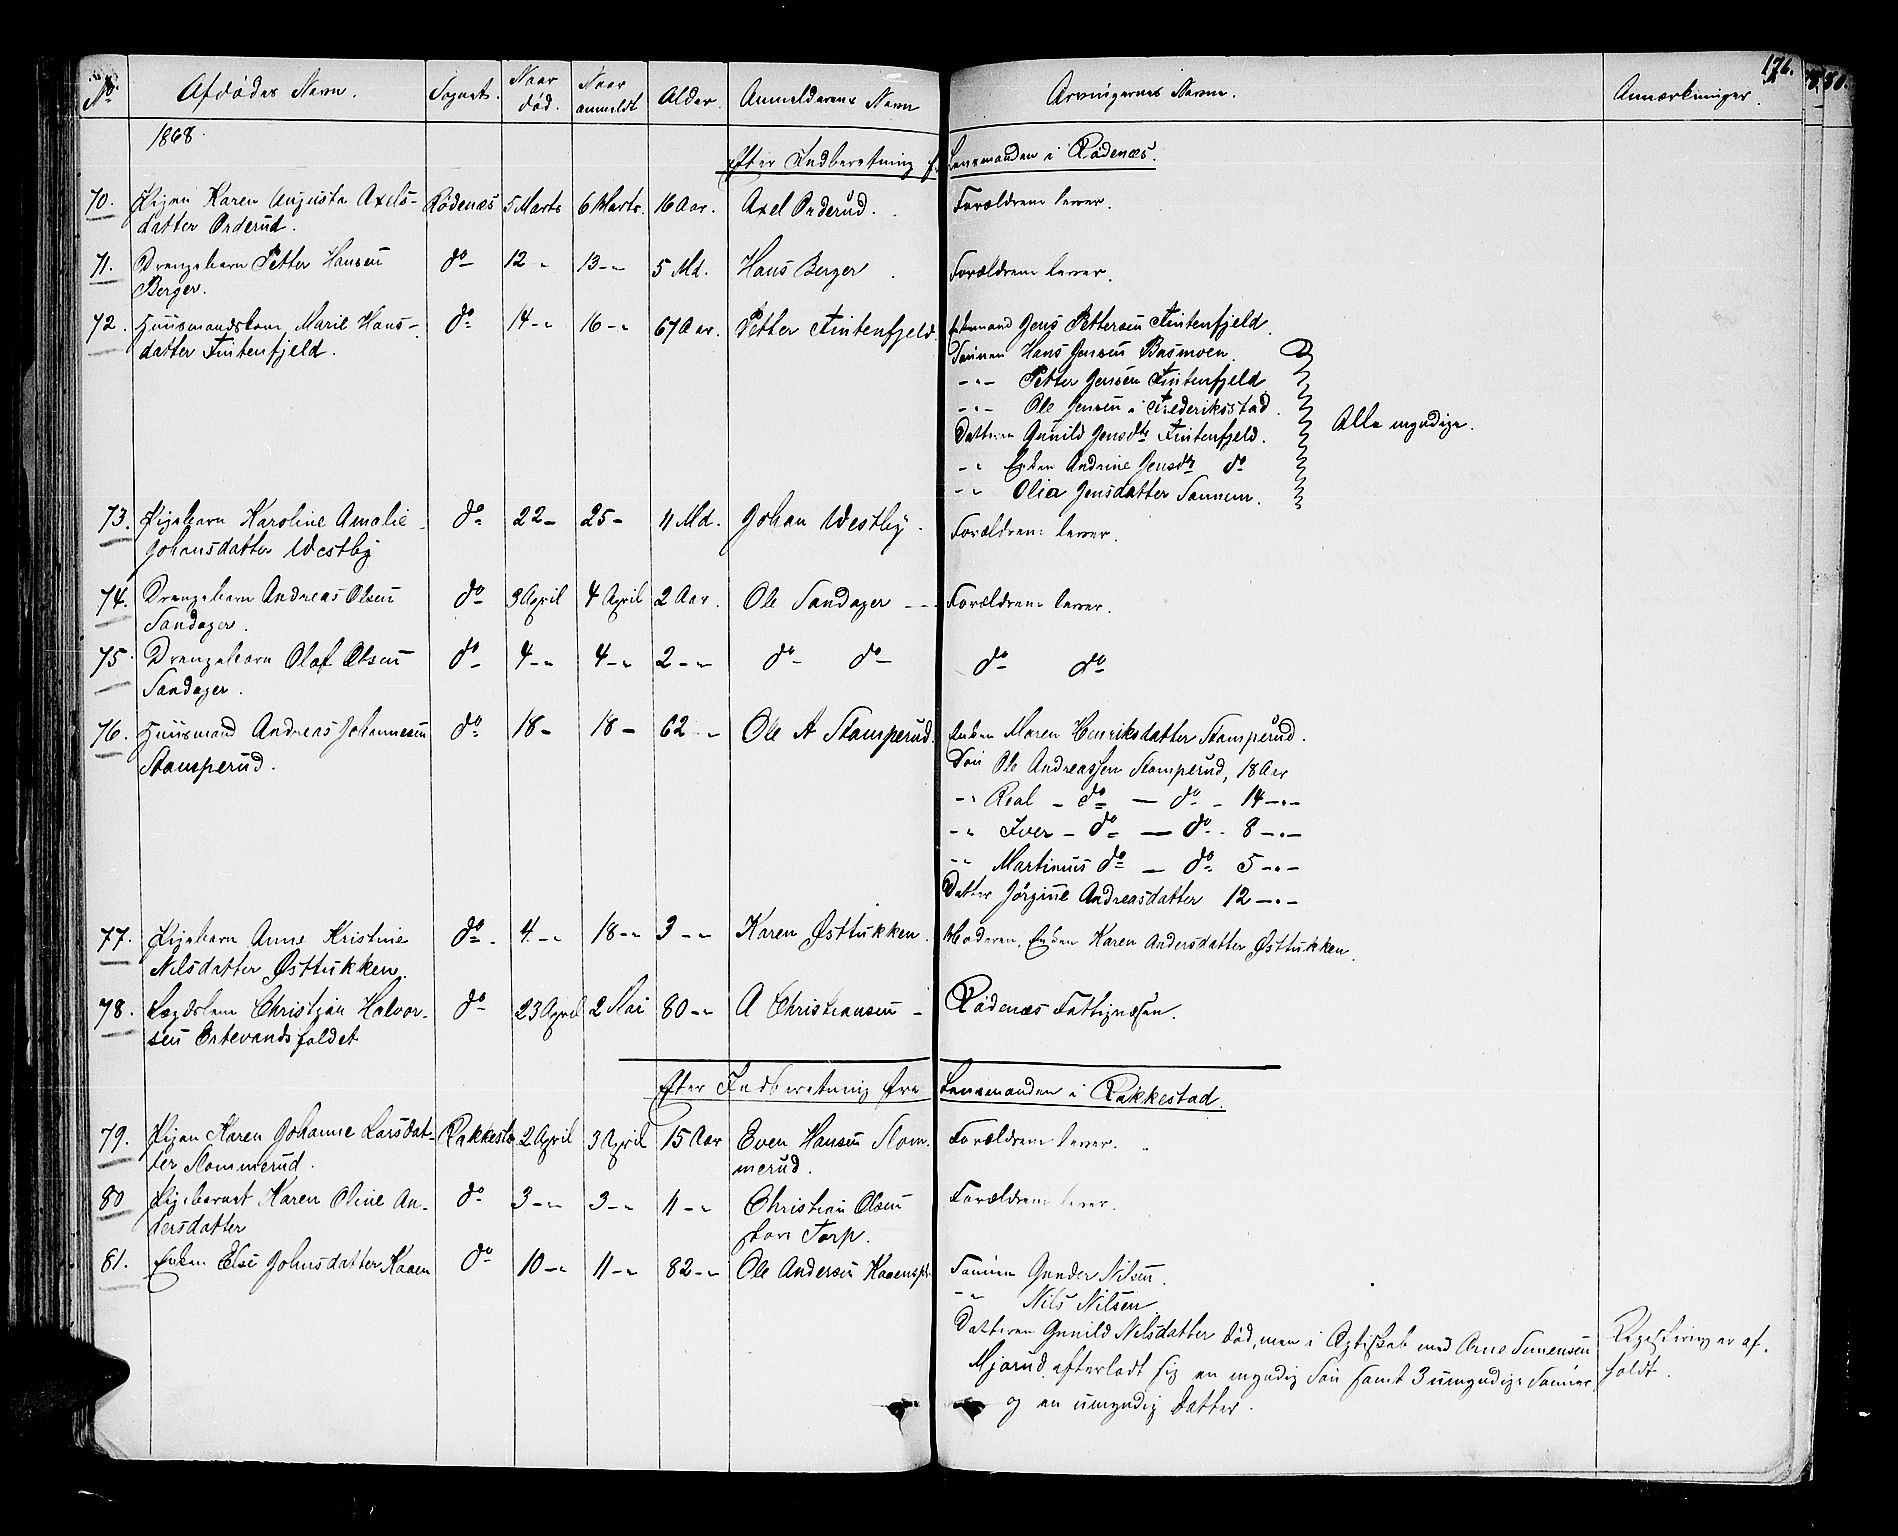 176.
No. Afdødes Navn. Sognet. Naar død. Naar anmeldt Alder. Anmelderens Navn Arvingernes Navne. Anmærkninger.
1868.
Efter Indberetning f. Lensmanden i Rødenæs.
70. Pigen Karen Augusta Axels- Rødenæs 5 Marts 6 Marts. 16 Aar. Axel Orderud. Forældrene lever.
datter Orderud.
71. Drengebarn Petter Hansen do 12 " 13 - " 5 Md. Hans Berger Forældrene lever.
Berger.
72. Huusmandskone Marie Hans- do 14 - " 16 - " 67 Aar. Petter Tintenfjeld. Enkemand Jens Pettersen Tintenfjeld.
datter Tintenfjeld. Sønnen Hans Jensen Basmoen.
- " - Petter Jensen Tintenfjeld
- " - Ole Jensen i Frederiksstad.
Datteren Gunild Jensdtr Tintenfjeld. Alle myndige.
- " Enken Andrine Jensdtr do
- " Olia Jensdatter Sannem.
73. Pigebarn Karoline Amalie do 22 - 25 - 11 Md. Johan Westby. Forældrene lever.
Johansdatter Westby
74. Drengebarn Andreas Olsen do 3 April 4 April 2 Aar. Ole Sandager - - Forældrene lever.
Sandager.
75. Drengebarn Olaf Olsen do 4 - " 4 - " 2 - " do do do do
Sandager.
76. Huusmand Andreas Johannesen do 18 - 18 - 62 - " Ole A Stamperud. Enken Maren Henriksdatter Stamperud.
Stamperud. Søn Ole Andreassen Stamperud, 18 Aar
- " Real - do - do - 14 - " -
- " Iver - do - do - 8 - " -
- " Martinus do - do 5 - " -
Datter Jørgine Andreasdatter 12 - " -
77. Pigebarn Anne Kristine do 4 - " 18 - " 3 - " Karen Østtukken. Moderen, Enken Karen Andersdatter Østtukken.
Nilsdatter Østtukken.
78. Lægdslem Christian Halvor- do 23 April 2 Mai 80 - " A Christiansen - Rødenæs Fattigvæsen.
sen Ertevandsfaldet
Efter Indberetning fra Lensmanden i Rakkestad.
79. Pigen Karen Johanne Larsdat- Rakkesta 2 April 3 April 15 Aar Even Hansen Slom- Forældrene lever.
ter Slommerud. merud.
80 Pigebarnet Karen Oline An- do 3 - " 3 - " 11 - " Christian Olsen Forældrene lever.
dersdatter Torp.
81. Enken Else Johnsdatter Kaaen do 10 - " 11 - " 82 - " Ole Andersen Sønnen Gunder Nilsen.
- " Nils Nilsen
Datteren Gunild Nilsdatter død, men i Ægteskab med Arne Simensen Registering er af-
Mjørud efterladt sig en myndig Søn samt 3 umyndige Sønner faldt.
og en umyndig Datter.